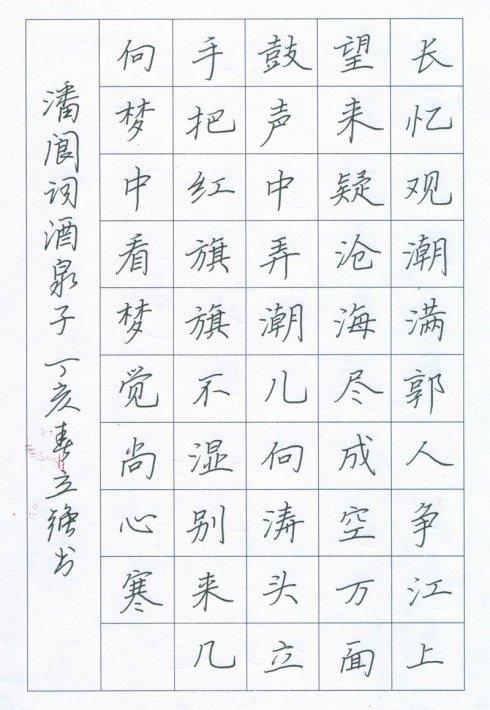 长忆观潮满郭人争江上
望来疑沧海尽成空万面
鼓声中弄潮儿向涛头立
手把红旗旗不湿别来几
向梦中看梦觉尚心寒
潘阆词酒泉子 丁亥春立强书